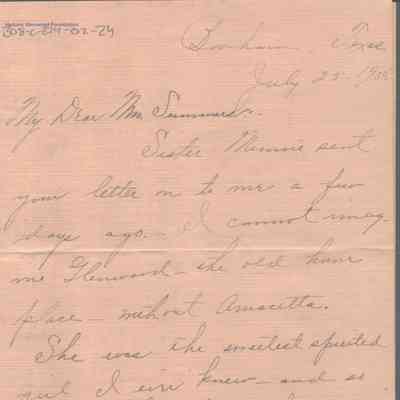 308-C-814-02-24
Bonham, Texas
July 25 - 1935
My Dear Mrs. Summers.
Sister Minnie sent
your letter on to me a few
days ago. - I cannot imag-
ine Glenwood - the old home
place - without Amacetta.
She was the sweetest spirited
girl I ever knew - and so